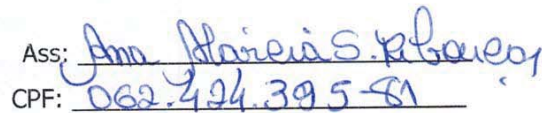 Ass: Ana Márcia S. Rebouças
CPF: 062.424.395-81